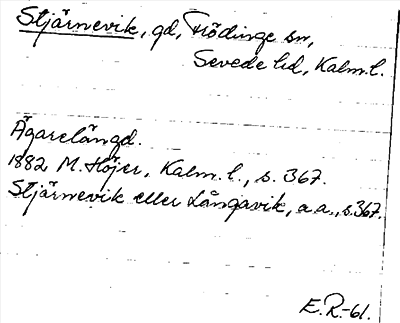 Stjärnevik, gd, Frödinge sn,
Sevede hd, Kalm.l.
Ägarelängd.
1882 M. Höjer, Kalm. l., s. 367.
Stjärnevik eller Långavik, a.a., s.367.
E.R.-61.